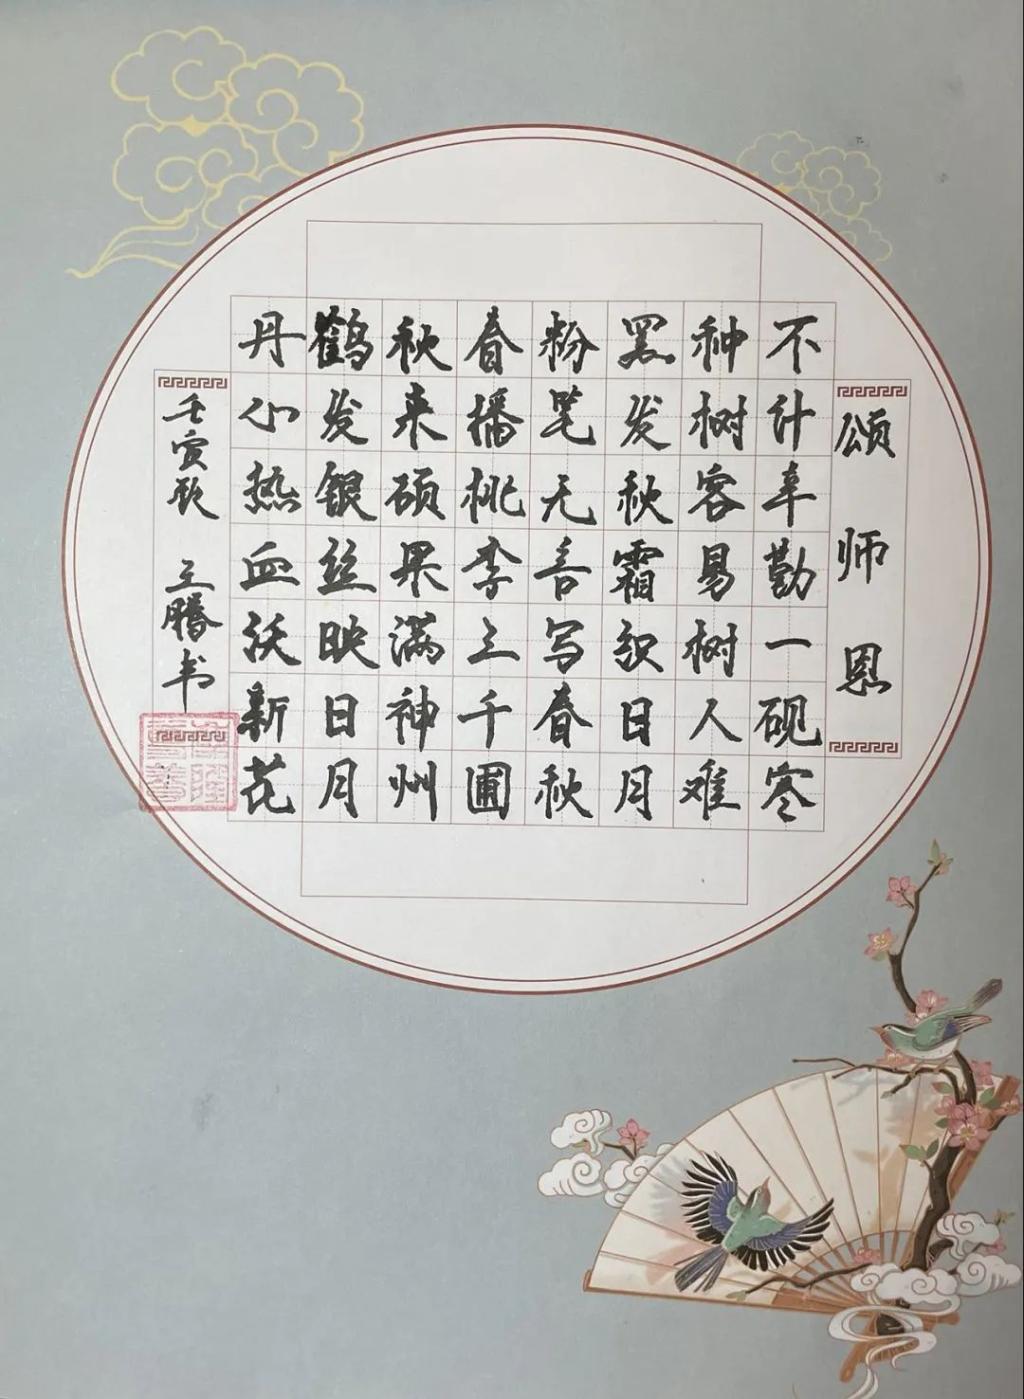 颂师恩
不计辛勤一砚寒
种树容易树人难
黑发秋霜织日月
粉笔无言写春秋
春播桃李三千圃
秋来硕果满神州
鹤发银丝映日月
丹心热血沃新花
壬寅秋 王腾书